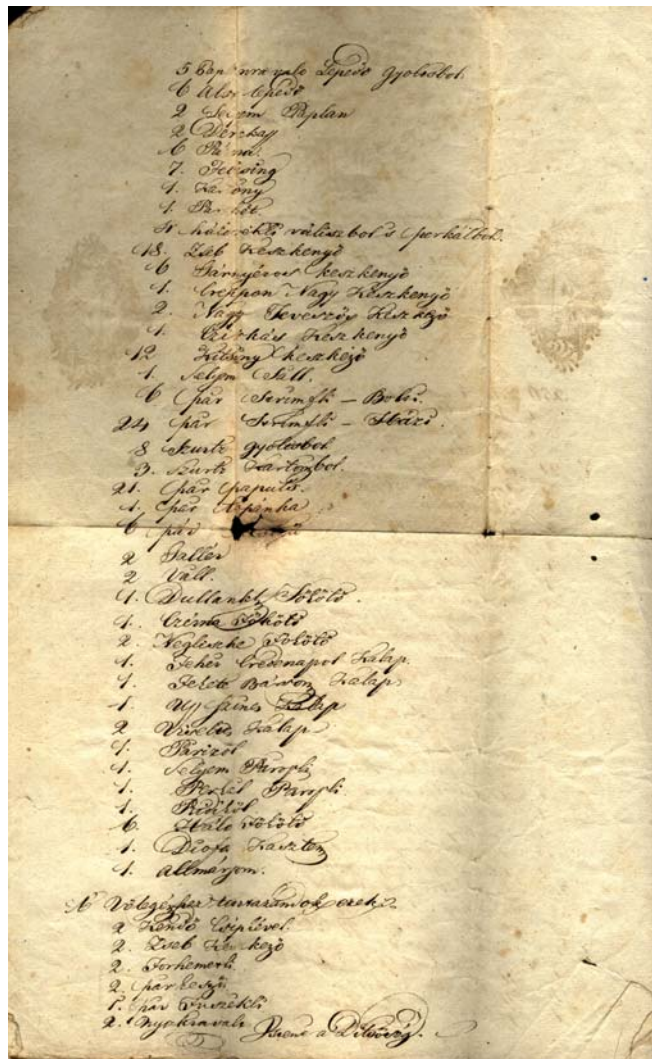 5 Paplanra valo Lepedö gyolcsbol
6 Alsó lepedö
2 Selyem Paplan
2 Derekaly
6 Párna
7. Felsing
1. Karkony
1. Parkét
4 háloréklì váliszbol s perkálbol.
18. Zseb keszkenyö
6 Gárnyéros keszkenyö
1. Creppon Nagy Keszkenyö
2. Nagy Teveszös Keszkezö
1. Czifkás Keszkenyö
12 Kitsiny keszkezö
1. Selyem Sall.
6 pár Strimfli – Bolti.
24 pár Strimfli – Házi.
8 Szurtz gyolcsbol
3. Szurtz Kartonbol.
21. pár paputs.
1. pár topánka
6 pár
2 Gallér
2 Váll.
1. Dullankly Fökötö.
1. Czérna Fökötö
2. Neglische Fökötö
1. Fehér Credenapol Kalap.
1. Fekete Bársony Kalap
1. Uj szines Kalap
2 Viselös Kalap
1. Parizol
1. Selyem Parapli
1. Perkél Parapli
1. Ridikül
6. Háló Fökötö
1. Diofa Kaszten
1. Allmárjom.
A' Völegényhez tartozandok ezek
2 Kendö Csipkével
2. Zseb Keszkezö
2. Forhemerli
2. pár kesztü
1. pár Fuszekli
2. Nyakravalo Istené a Ditsöség.